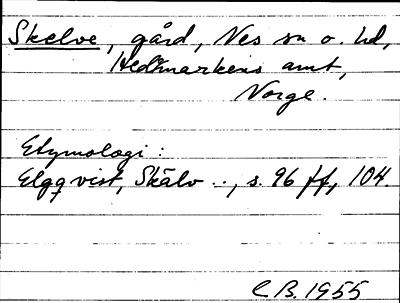 Skelve, gård, Nes sn o. hd,
Hedmarkens amt,
Norge.
Etymologi:
Elgqvist, Skälv .., s. 96 ff, 104.
C B. 1955